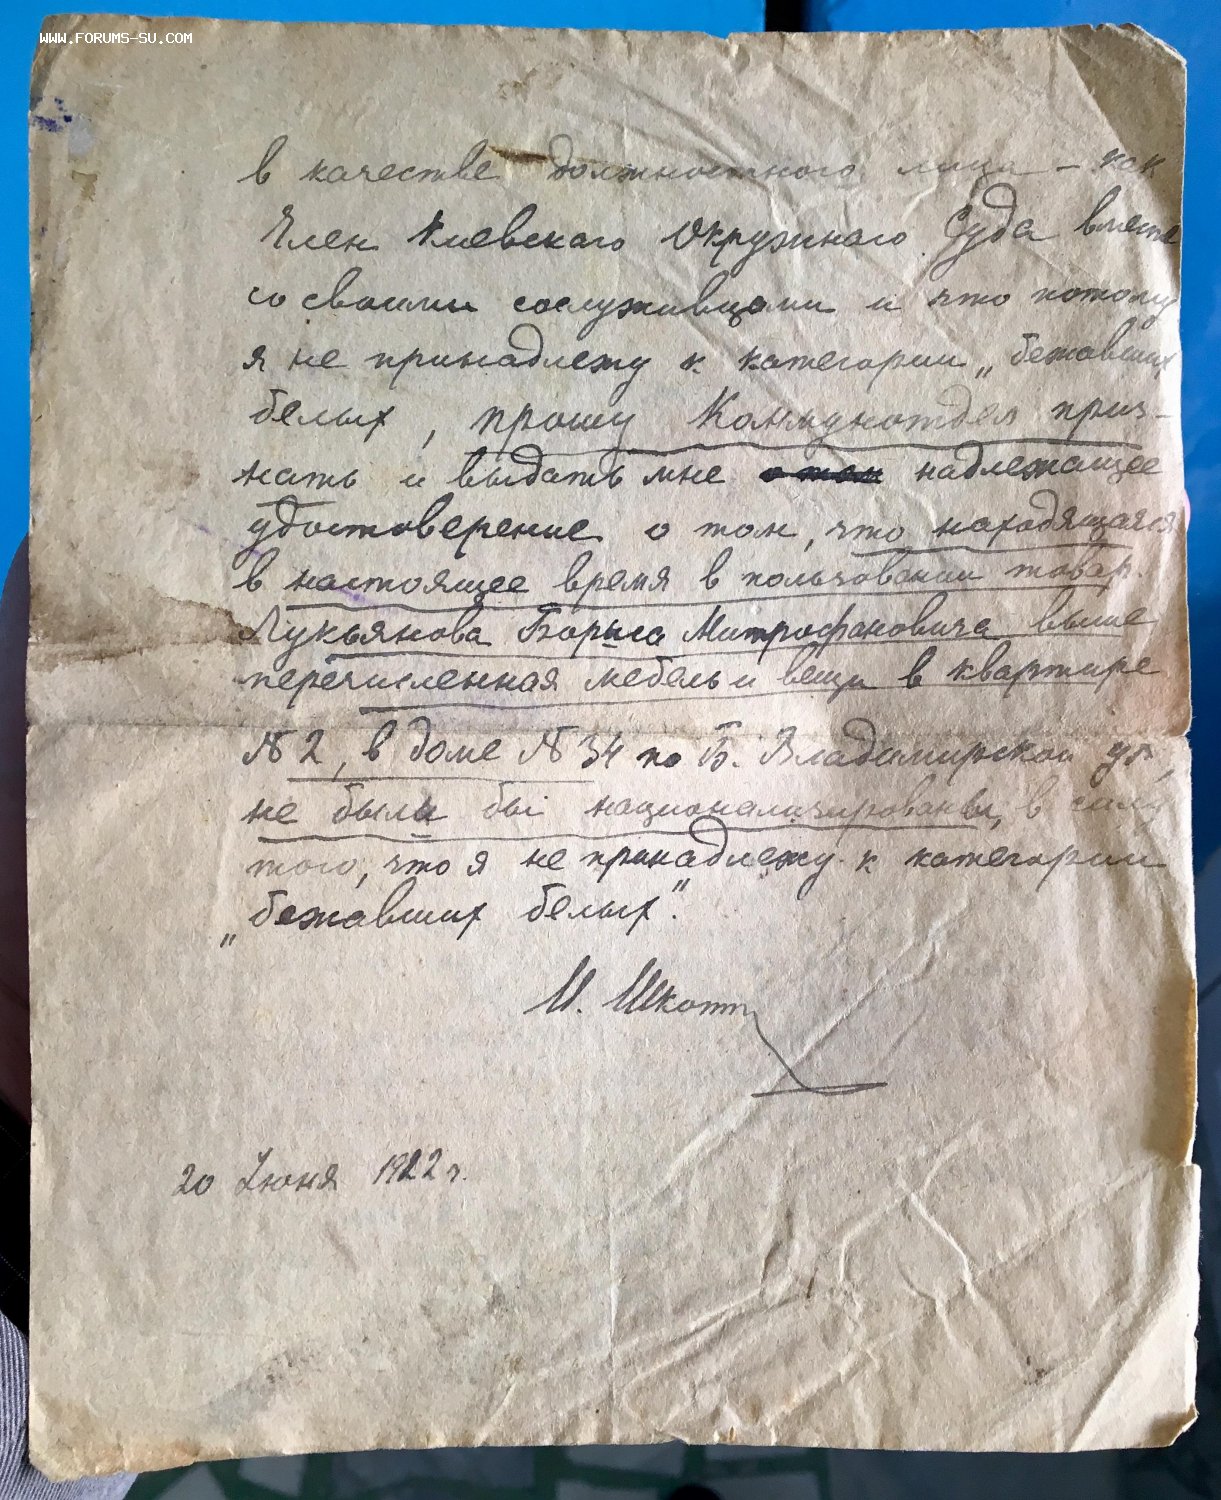 WWW.FORUMS-SU.COM
в качестве должностного лица – как
Член Киевского Окружнаго Суда вместе
со своими сослуживцами и что потому
я не принадлежу к категории „бежавших
белых, прошу Коммунотдел приз-
нать и выдать мне о том надлежащее
удостоверение о том, что находящаяся
в настоящее время в пользовании товар.
Лукьянова Бориса Митрофановича выше
перечисленная мебель и вещи в квартире
№ 2, в доме № 34 по Б. Владимирской ул,
не были бы национализированы, в силу
того, что я не принадлежу к категории
„бежавших белых".
И. Шкотт
20 Июня 1922 г.